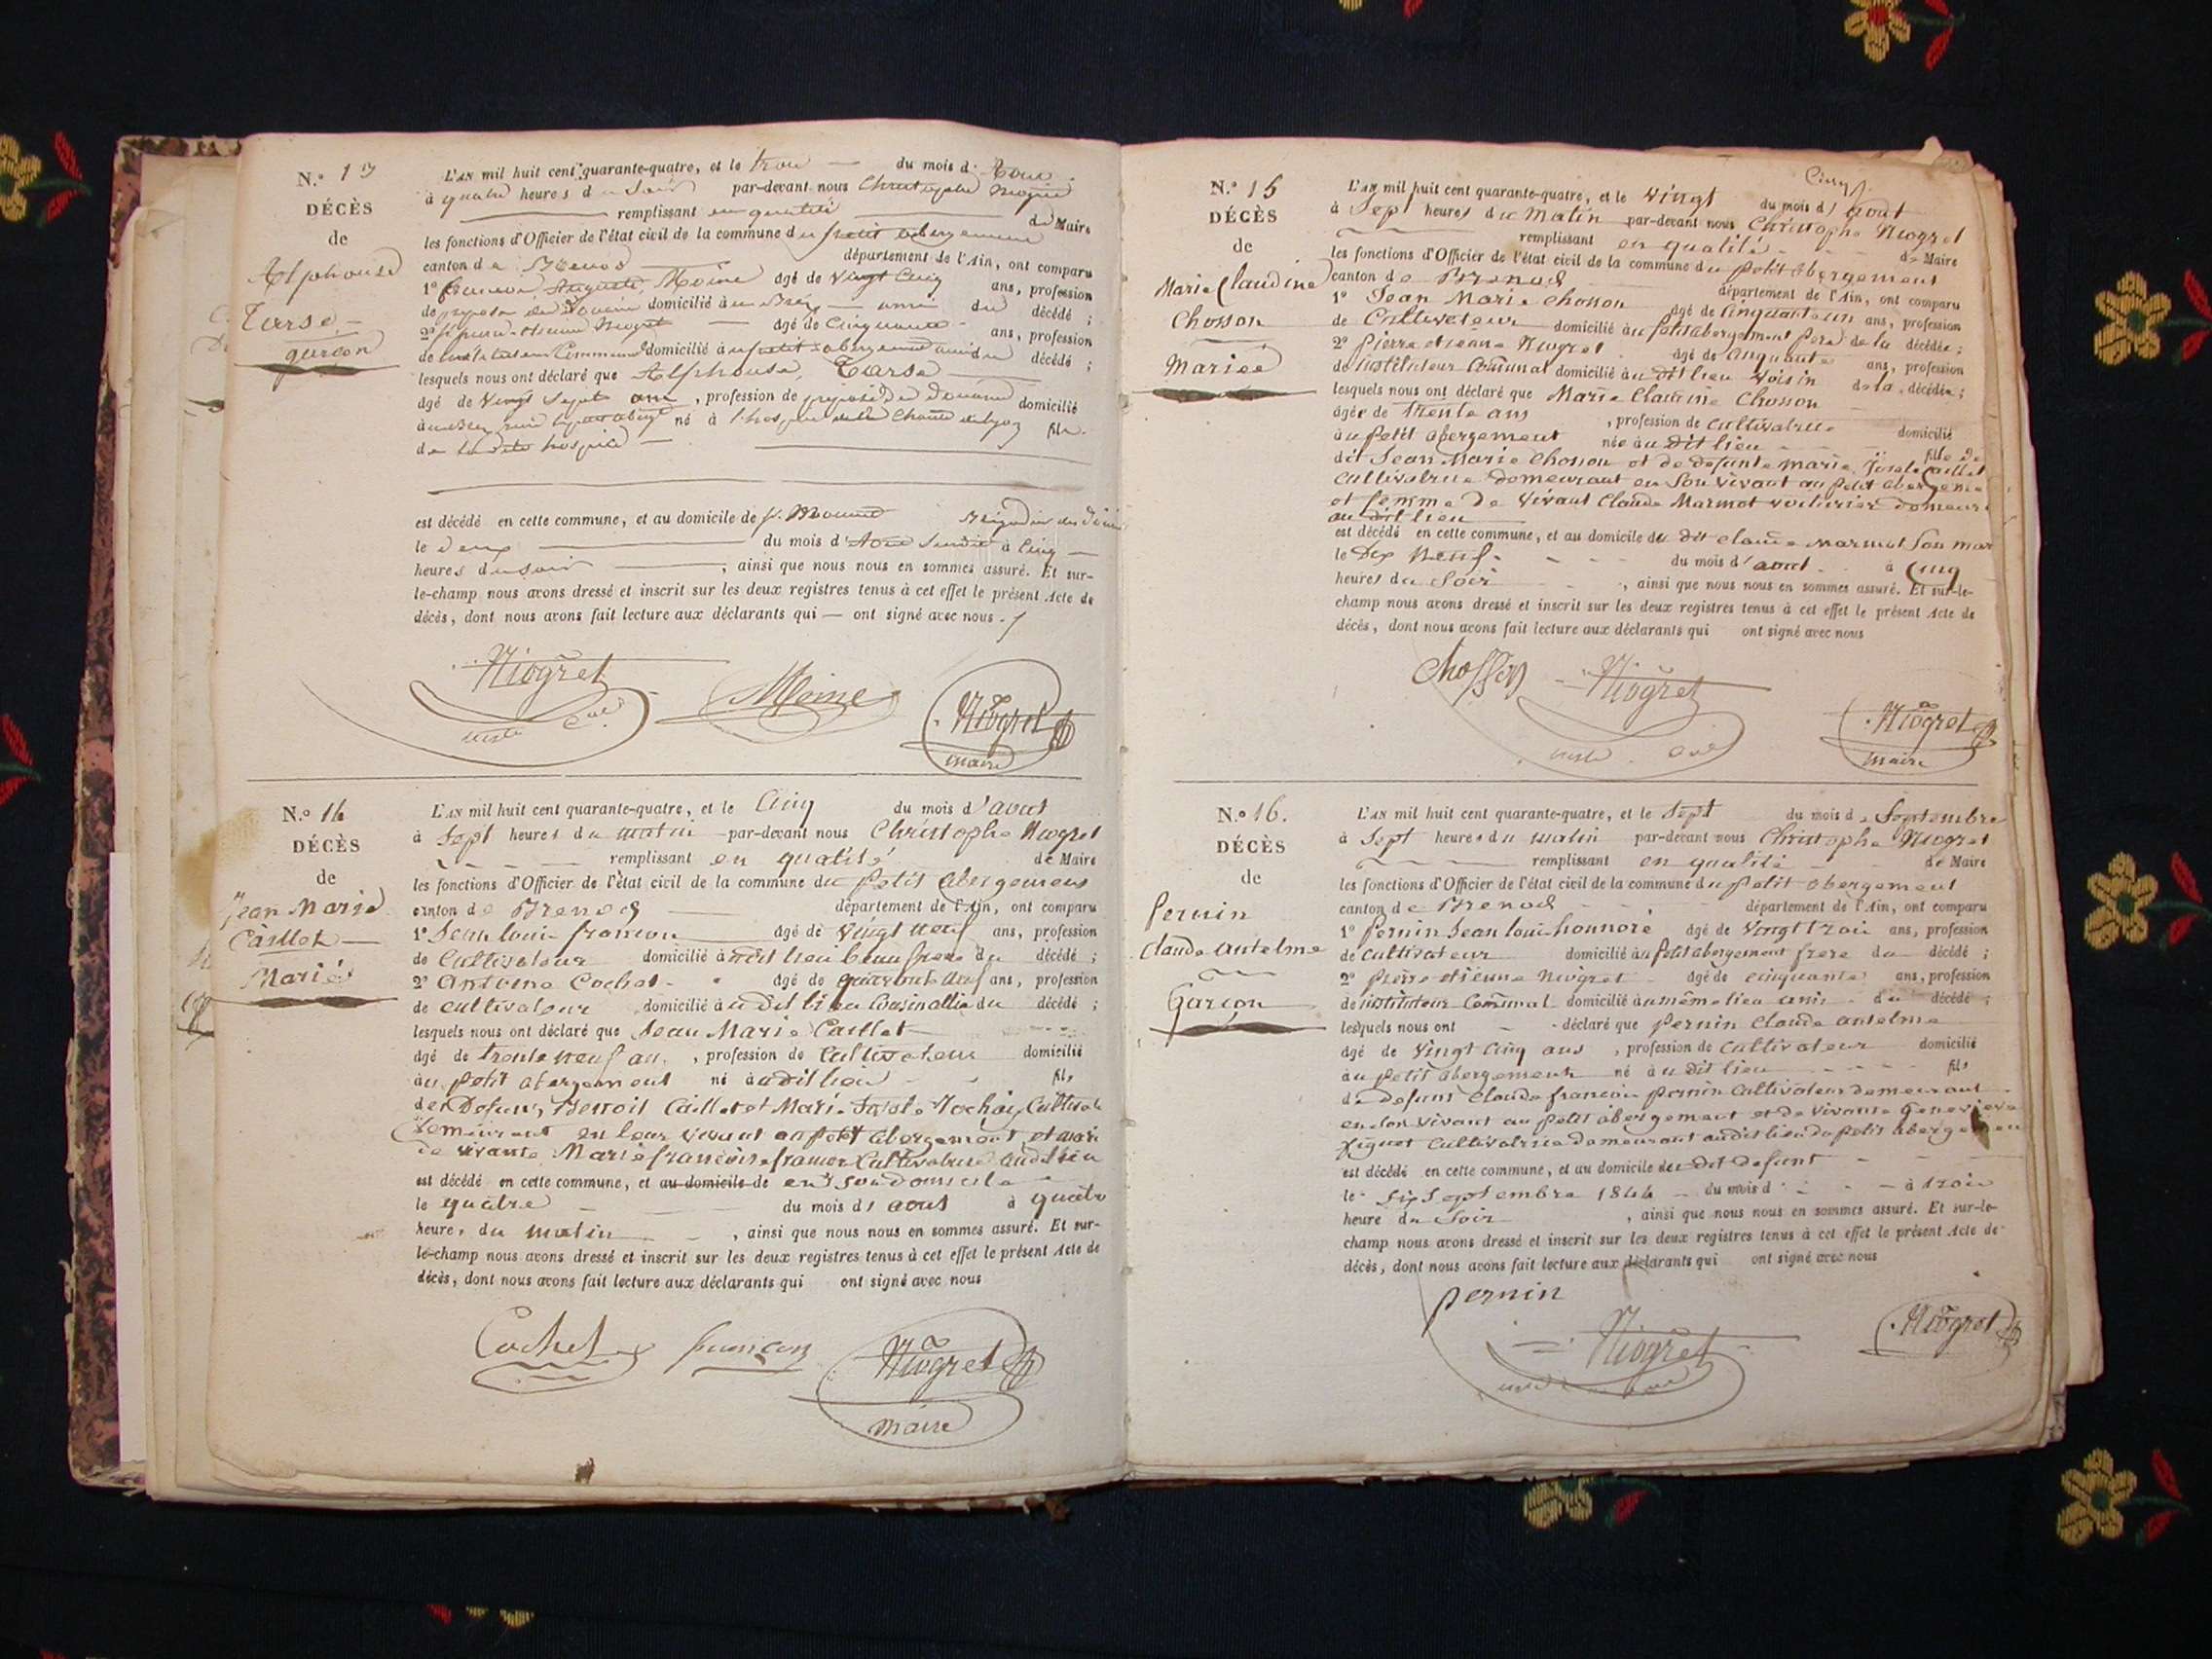 N.° 13
DÉCÈS
de
Alphonse
Tarse
garçon
L'AN mil huit cent quarante-quatre, et le trois du mois d'
à quatre heures du Soir par-devant nous Christophe Niogret
remplissant en qualité de Maire
les fonctions d'Officier de l'état civil de la commune du petit abergement
canton de Brenod département de l'Ain, ont comparu
1° Auguste Moine âgé de Vingt Cinq ans, profession
de domicilié à ami du décédé ;
2° Niogret âgé de Cinquante ans, profession
de domicilié au petit abergement ami du décédé ;
lesquels nous ont déclaré que Alphonse, Tarse
âgé de Vingt Sept ans, profession de préposé de Douane domicilié
né à l'hospice de la Charité de Lyon fils
de la dite hospice
est décédé en cette commune, et au domicile de
le deux du mois d' à Cinq
heures du Soir, ainsi que nous nous en sommes assuré. Et sur-
le-champ nous avons dressé et inscrit sur les deux registres tenus à cet effet le présent Acte de
décès, dont nous avons fait lecture aux déclarants qui — ont signé avec nous.
Niogret Moine Niogret
maire
N.° 14
DÉCÈS
de
Jean Marie
Caillet
Marié
L'AN mil huit cent quarante-quatre, et le Cinq du mois d'aout
à Sept heures du matin par-devant nous Christophe Niogret
remplissant en qualité de Maire
les fonctions d'Officier de l'état civil de la commune du Petit abergement
canton de Brenod département de l'Ain, ont comparu
1° Jean louis françon âgé de Vingt neuf ans, profession
de Cultivateur domicilié audit lieu beau frere du décédé ;
2° Antoine Cochet âgé de quarante neuf ans, profession
de cultivateur domicilié au dit lieu Cousin allié du décédé ;
lesquels nous ont déclaré que Jean Marie Caillet
âgé de trente neuf an, profession de Cultivateur domicilié
au petit abergement né audit lieu fils
des Defunts Benoit Caillet et Marie Cultivat
demeurant en leur vivant au petit abergement, et mari
de vivante Marie françoise françon Cultivatrice audit lieu
est décédé en cette commune, et au domicile de en Son domicile
le quatre du mois d'aout à quatre
heures du matin, ainsi que nous nous en sommes assuré. Et sur-
le-champ nous avons dressé et inscrit sur les deux registres tenus à cet effet le présent Acte de
décès, dont nous avons fait lecture aux déclarants qui ont signé avec nous
Cochet françon Niogret
maire
N.° 15
DÉCÈS
de
Marie Claudine
Chosson
Mariée
L'AN mil huit cent quarante-quatre, et le Vingt du mois d'aout
à Sept heures du Matin par-devant nous Christophe Niogret
remplissant en qualité de Maire
les fonctions d'Officier de l'état civil de la commune du petit abergement
canton de Brenod département de l'Ain, ont comparu
1° Jean Marie chosson âgé de Cinquante un ans, profession
de Cultivateur domicilié au petit abergement Pere de la décédée ;
2° pierre etienne Niogret âgé de cinquante ans, profession
de instituteur Communal domicilié au dit lieu Voisin de la décédée ;
lesquels nous ont déclaré que Marie Claudine Chosson
âgée de trente ans, profession de cultivatrice domicilié
au petit abergement née au dit lieu fille de
dit Jean Marie Chosson et de defunte marie Caillet
cultivatrice demeurant en Son vivant au petit abergeme
et femme de vivant Claude Marmot voiturier demeur
au dit lieu
est décédé en cette commune, et au domicile du dit claude marmot Son mar
le Dix Neuf du mois d'aout à Cinq
heures du Soir, ainsi que nous nous en sommes assuré. Et sur-le-
champ nous avons dressé et inscrit sur les deux registres tenus à cet effet le présent Acte de
décès, dont nous avons fait lecture aux déclarants qui ont signé avec nous
chosson Niogret Niogret
maire
N.° 16.
DÉCÈS
de
Pernin
Claude Antelme
Garçon
L'AN mil huit cent quarante-quatre, et le Sept du mois de Septembre
à Sept heures du matin par-devant nous Christophe Niogret
remplissant en qualité de Maire
les fonctions d'Officier de l'état civil de la commune du petit abergement
canton de Brenod département de l'Ain, ont comparu
1° Pernin Jean louis honnoré âgé de Vingt trois ans, profession
de cultivateur domicilié au petit abergement frere du décédé ;
2° pierre etienne Niogret âgé de cinquante ans, profession
de instituteur Communal domicilié au même lieu ami du décédé ;
lesquels nous ont déclaré que pernin Claude antelme
âgé de Vingt Cinq ans, profession de cultivateur domicilié
au petit abergement né au dit lieu fils
de defunt Claude françois pernin Cultivateur demeurant
en Son vivant au petit abergement et de vivante Genevieve
cultivatrice demeurant audit lieu du petit abergemen
est décédé en cette commune, et au domicile du dit defunt
le Six Septembre 1844 du mois d à trois
heure du Soir, ainsi que nous nous en sommes assuré. Et sur-le-
champ nous avons dressé et inscrit sur les deux registres tenus à cet effet le présent Acte de
décès, dont nous avons fait lecture aux déclarants qui ont signé avec nous
pernin
Niogret Niogret